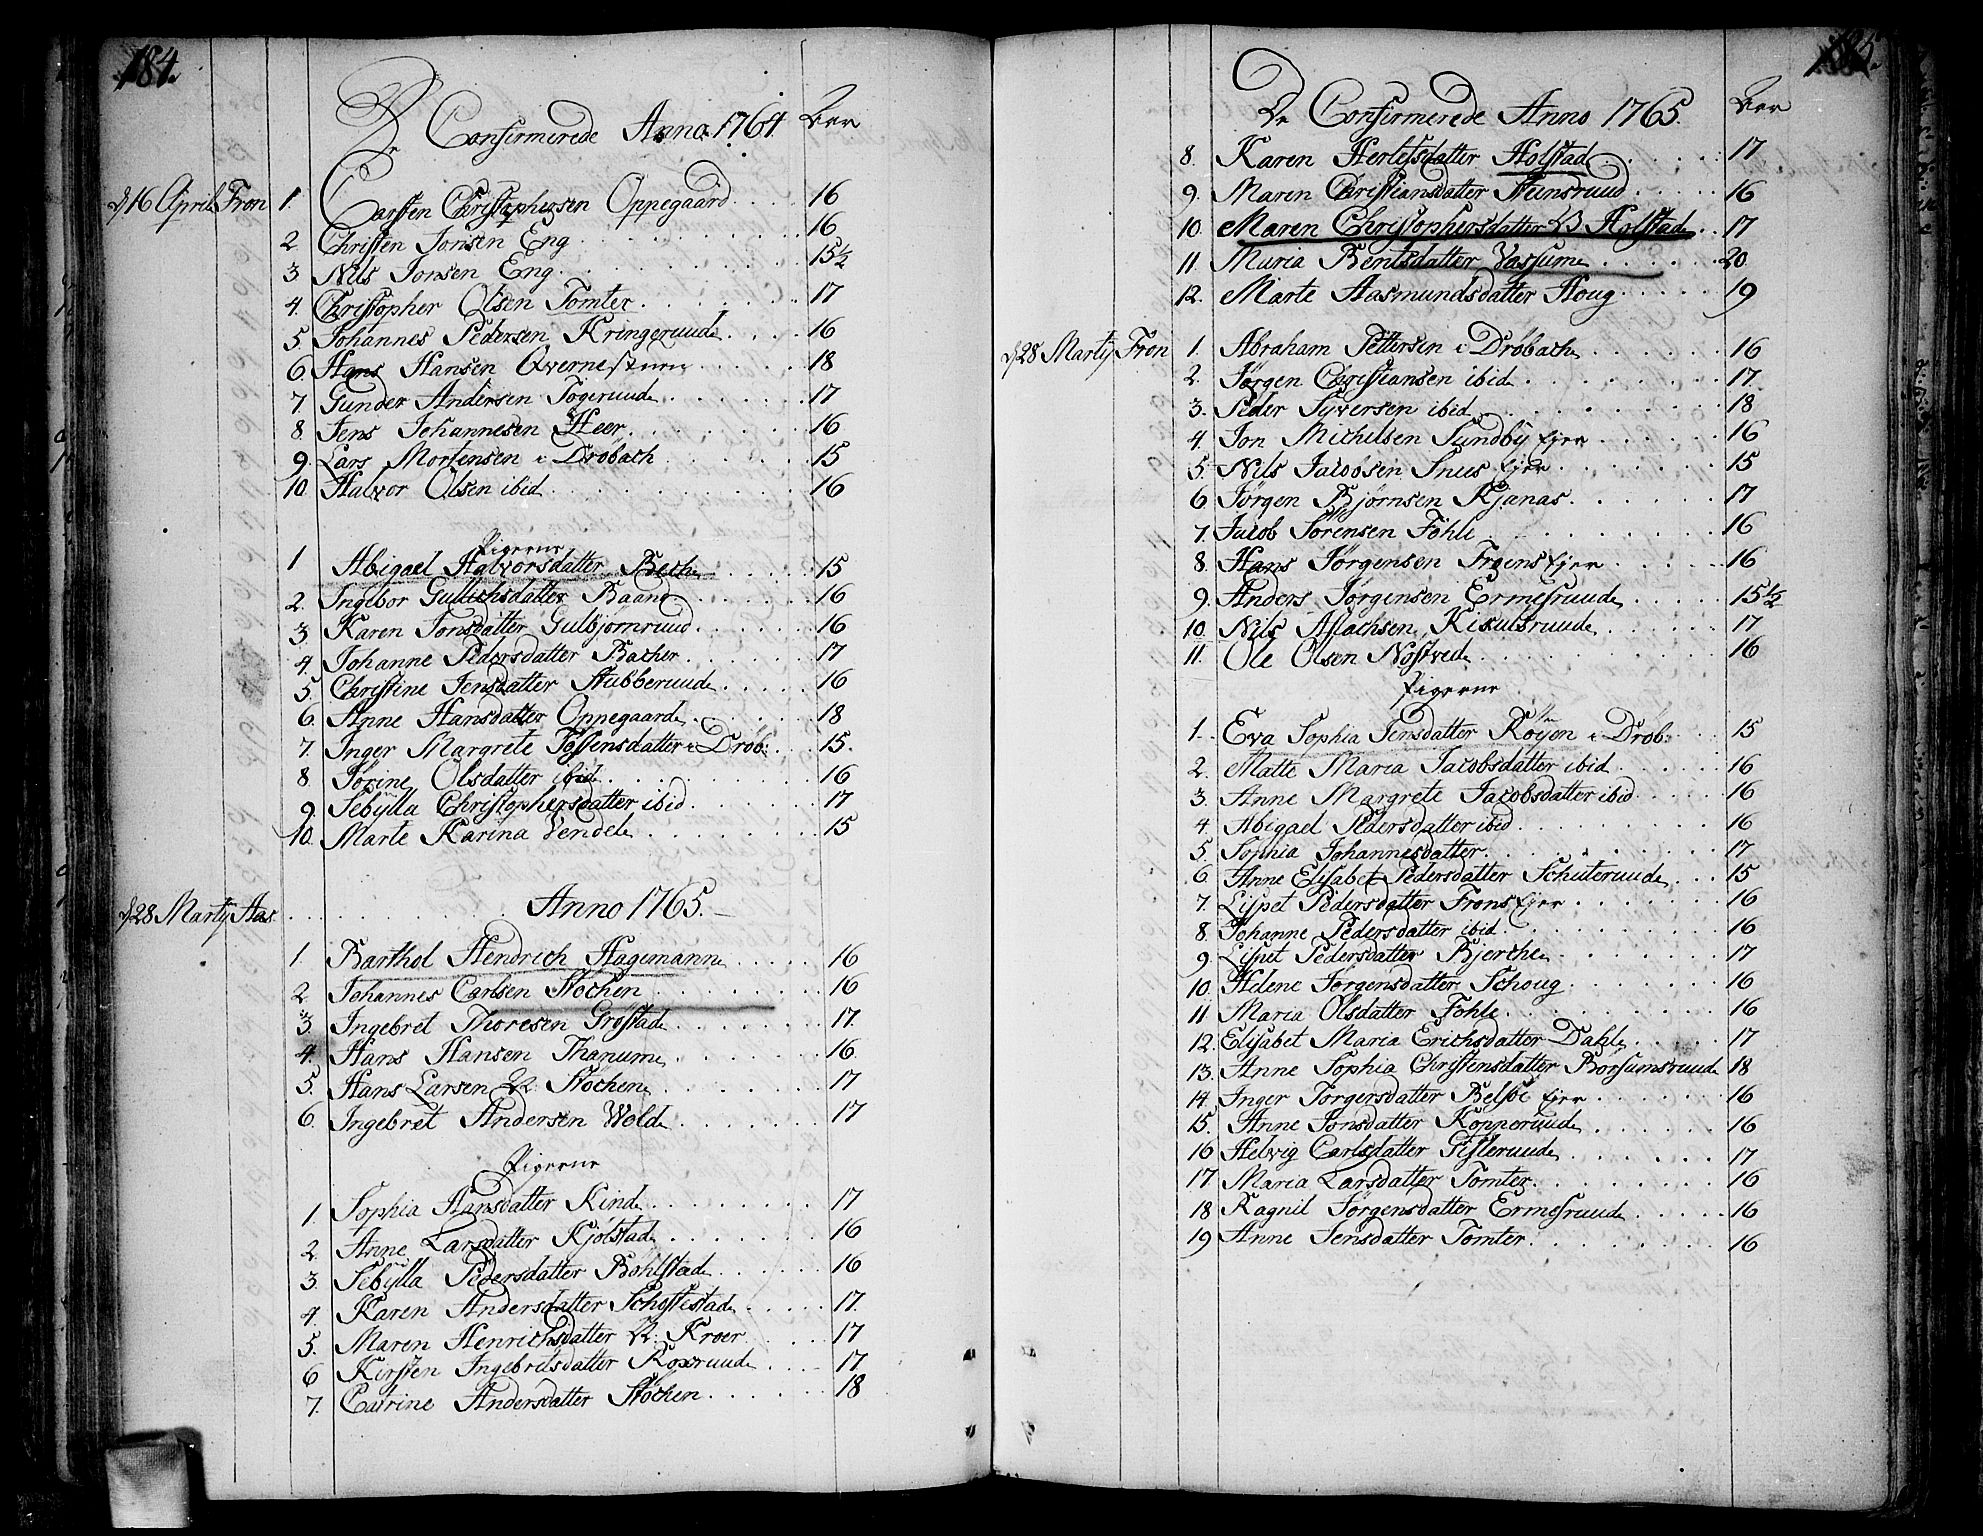 184.
De Confirmerede Anno 1764 Aar
d 16 April Fron 1. Carsten Christophersen Oppegaard 16
2. Christen Jonsen Eng 16
3 Nils Jonsen Eng 15 1/2
4. Christopher Olsen Tomter 17
5 Johannes Pedersen Kringeruude 16
6. Hans Hansen 18
7. Gunder Andersen Togeruude 17
8 Jens Johannesen Heer 16
9. Lars Mortensen i Drøbach 15
10 Halvor Olsen ibid 16
Pigerne
1 Abigael Halvorsdatter Bech 15
2. Ingebor Gullichsdatter Raano 16
3 Karen Jonsdatter Gulbjørnruud 16
4. Johanne Pedersdatter Bacher 17
5. Christine Jensdatter Stubberuude 16
6. Anne Hansdatter Oppegaarde 18
7. Inger Margrete Tostensdatter i Drøb: 15.
8. Jørine Olsdatter ibid 16
9. Sebylla Christophersdatter ibid 17
10. Marte Karina Vendele 15
Anno 1765.
d 28 Martij Aas
1. Barthol Hendrich Hagemann 16
2. Johannes Carlsen Støchen 16
3. Ingebret Thoresen Grøstad 17.
4. Hans Hansen Thanume 16.
5. Hans Larsen N: Støchen 17
6. Ingebret Andersen Wolde 17
Pigerne
1. Sophia Hansdatter Kinde 17
2. Anne Larsdatter Kjølstad 16
3. Sebylla Pedersdatter Bøhlstad 16
4. Karen Andersdatter Schostestad 17.
5. Maren Henrichsdatter N: Kroer 17
6 Kirsten Ingebretsdatter Roxruude 17.
7. Catrine Andersdatter Støchen 18
185.
De Confirmerede Anno 1765. Aar
8. Karen Herlefsdatter Holstad 17
9. Maren Christiansdatter Steinsruud 16
10. Maren Christophersdatter N Holstad 17
11. Maria Bentsdatter Vassume 20
12. Marte Aasmundsdatter Houg 19
d 28 Martij Fron 1. Abraham Pettersen i Drøbach 16
2. Jørgen Christiansen ibid 17.
3. Peder Syversen ibid 18
4 Jon Michelsen Sundby Ejer 16
5. Nils Jacobsen Snus Ejer 15
6 Jørgen Bjørnsen Kjanas 17
7. Jacob Sørensen Føhle 16
8. Hans Jørgensen Froens Ejer 16
9. Anders Jørgensen Ermesruude 15 1/2
10. Nils Aslachsen Kisulsruude 17
11. Ole Olsen Nøstvede 16
Pigerne
1. Eva Sophia Jensdatter Røyøn i Drøb: 15
2. Matte Maria Jacobsdatter ibid 16
3. Anne Margrete Jacobsdatter ibid 16
4 Abigael Pedersdatter ibid 16
5. Sophia Johannesdatter 17
6 Anne Elisabet Pedersdatter Schuteruude 15
7. Lispet Pedersdatter Frons Ejer 16
8. Johanne Pedersdatter ibid 16
9. Lispet Pedersdatter Bjerche 17
10 Helene Jørgensdatter Schoug 16
11 Maria Olsdatter Føhle 16
12. Elisabet Maria Erichsdatter Dahle 17
13. Anne Sophia Christensdatter Borsumsruude 18
14 Inger Torgersdatter Belsøe Ejer 16
15. Anne Jonsdatter Kopperuude 16
16 Helvig Carlsdatter Fisleruude 17
17 Maria Larsdatter Tomter 16
18 Ragnil Jørgensdatter Ermesruude 16
19 Anne Jensdatter Tomter 16